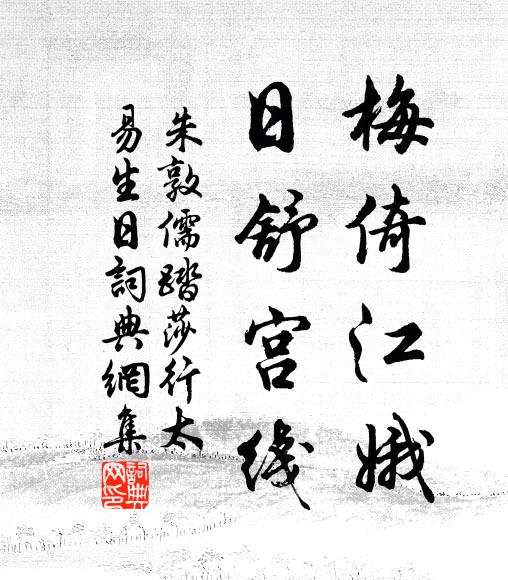 梅倚江娥
日舒宫线
朱敦儒踏莎行太
易生日詞典網集
詞典
网印